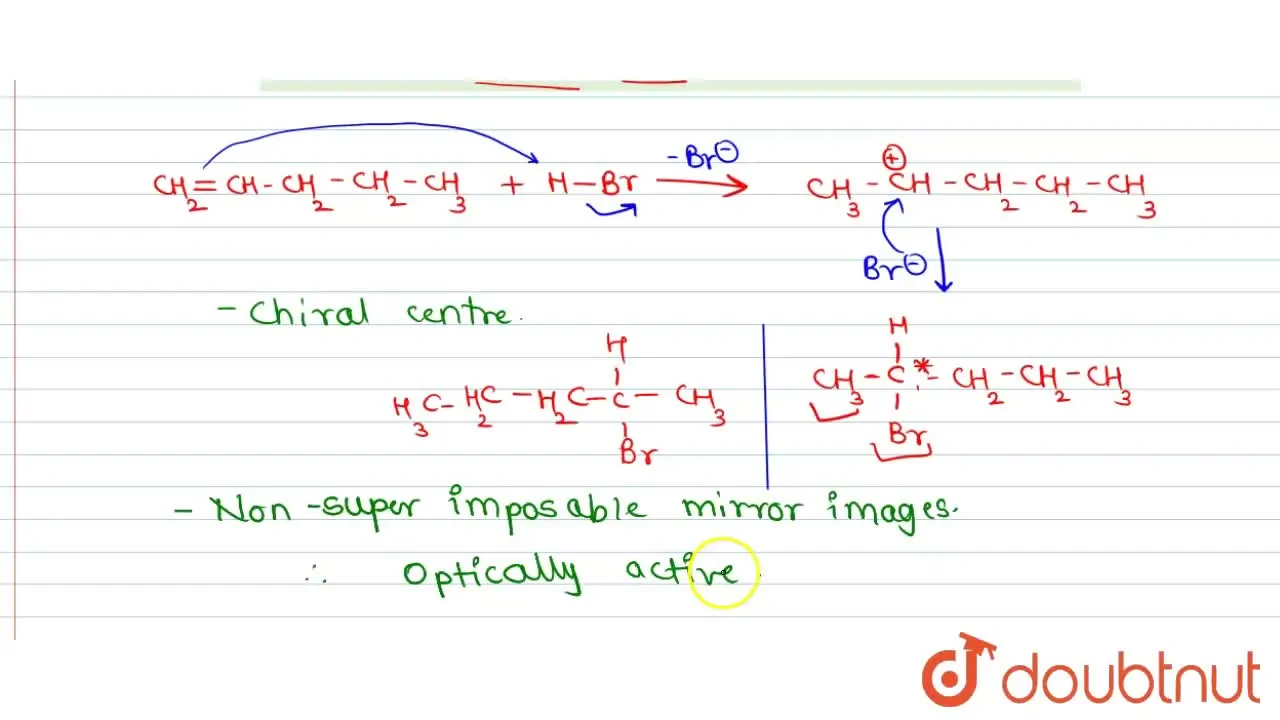 -Br⊖
CH2=CH-CH2-CH2-CH3 + H-Br ⟶ CH3-CH-CH2-CH2-CH3
⊕
Br⊖
- Chiral centre.
H
H3C-H2C-H2C-C-CH3
Br
H
CH3-C*-CH2-CH2-CH3
Br
- Non-super imposable mirror images.
∴ Optically active.
doubtnut